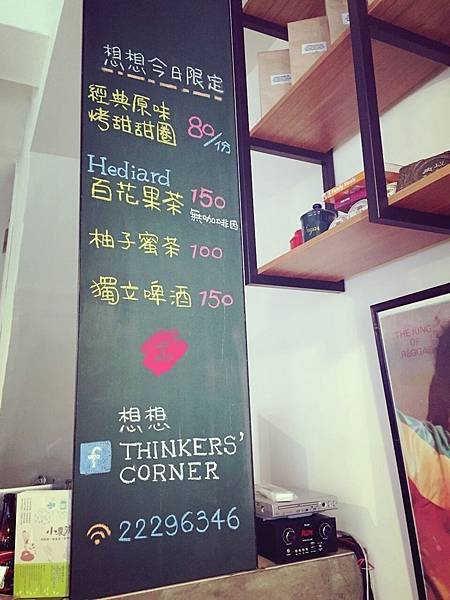 想想今日限定
經典原味
烤甜甜圈 80/份
Hediard
百花果茶 150
無咖啡因
柚子蜜茶 100
獨立啤酒 150
想想
f THINKERS'
CORNER
22296346
THE KING
OF
REGGAE